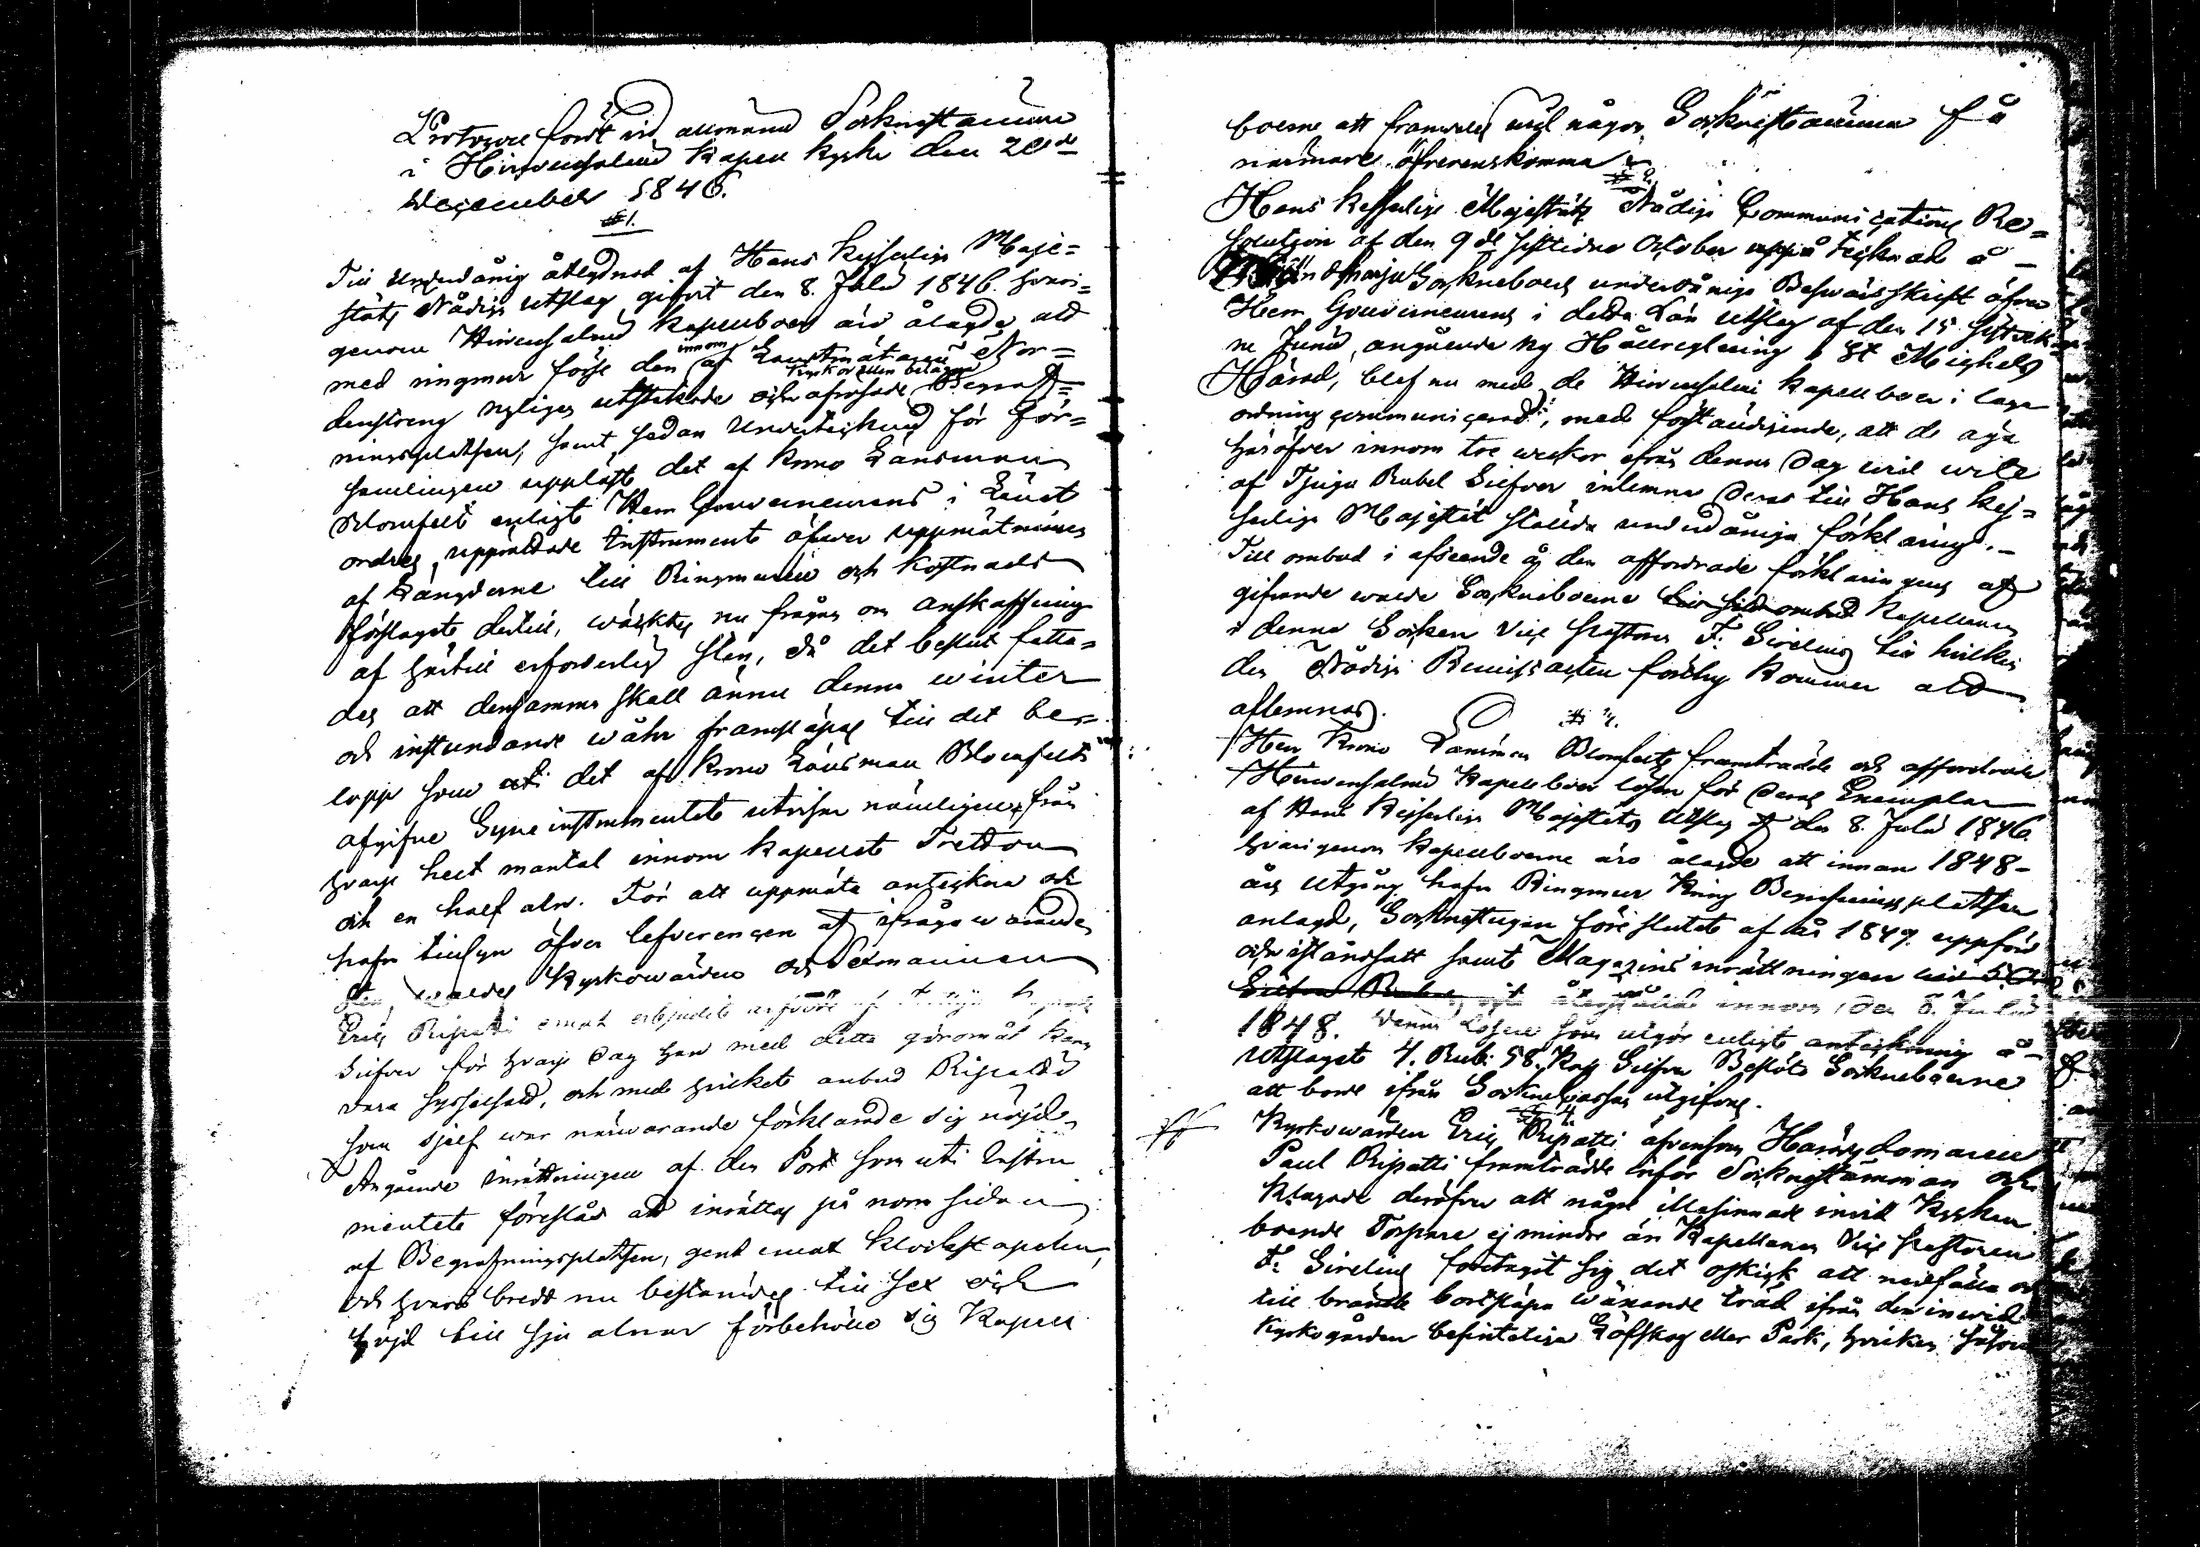 Protocoll fördt vid allmänna Sockenstämma
i Hirvensalmi Kapell kyrka den 20de
December 1846.
§ 1.
Till underdånig åtlydnad af Hans Kejserliga Maje=
stäts Nådiga Utslag gifvit den 8. Julii 1846. hvari=
genom Hirvensalmi Kapellboer äro ålagde att
med ringmur förse den innom af Landtmätaren Nor=
denstreng nyligen utstakade och afrösade Kyrkovallen belägna Begraf=
ningsplatsen, samt sedan Undertecknad för För=
samlingen uppläst det af Krono Länsman
Blomfelt enligt Herr Gouverneurens i Länet
ordres upprättade Instrument öfver uppmätningen
af Längderne till Ringmuren och Kostnads
förslaget dertill, wäcktes nu frågan om anskaffning
af härtill erforderlig sten, då det beslut fatta=
des att densamma skall ännu denna winter
och instundande wåhr framsläpas till det be=
lopp som uti det af Krono Länsman Blomfelt
afgifne Syneinstrumentet utvisar nämligen från
hvarje helt mantal innom Kapellet Tretton
och en half aln. För att uppmäta anteckna och
hafva tillsyn öfver lefverencen af ifrågawarande
sten, waldes Kyrkowärden och Sexmannen
Eric Ripatti emot erbjudit arfvode af
Silfver för hvarje dag han med detta göromål kan
vara sysselsatt, och med hvilket anbud Ripatti
som sjelf war närwarande förklarade sig nöjd.
Angående inrättningen af den Port som uti Instru
mentet föreslås att inrättas på norra sidan
af Begrafningsplatsen, gent emot Klockstapelen,
och hvars bredt nu bestämdes till sex och
höjd till sju alnar förbehöllo sig Kapell
boerne att framdeles wid någon Sockenstämma få
närmare öfverenskomma
§ 2.
Hans Kejserliga Majestäts Nådiga Communications Re=
solution af den 9de sistledne October uppå tecknad å
Sockneboers underdåniga Beswärsskrift öfver
Herr Gouverneurens i detta Län Utslag af den 15 sistvek=
ne Junii, angående ny Hållreglering i St Michels
Härad, blef nu med de Hirvensalmi Kapellboer i laga
ordning communicerad, med förständigande, att de äga
häröfver innom tre weckor ifrån denna dag wid wite
af Tjugu Rubel Silfver inlemna deras till Hans Kej=
serliga Majestät ställda underdåniga förklaring.
Till ombud i afseende å den affordrade förklaringens af
gifvande walde Sockneboerne Kapellanen
i denna Socken Vice Pastorn F. Sirelius till hvilken
den Nådiga Remissacten förthy kommer att
aflemnas.
§ 3.
Herr Krono Länsman Blomfelt framträdde och affordrade
Hirvensalmi Kapellboer lösen för deras Exemplar
af Hans Kejserliga Majestäts Utslag af den 8. Julii 1846
hvarigenom Kapellboerne äro ålagde att innan 1848
års utgång hafva Ringmur kring Begrafningsplattsen
anlagd, Socknestugan före slutet af år 1849. uppförd
och iståndsatt samt Magazins inrättningen
innom den 8. Julii
1848. Denna Lösen som utgör enligt anteckning å
Utslaget 4. Rub. 58. Kop. Silfver Beslöto Sockneboerne
att borde ifrån Socknekassan utgifvas.
§ 4.
Kyrkowärden Eric Ripatti äfvensom Häradsdomaren
Paul Ripatti framträdde inför Sockenstämman och
klagade deröfver att någre illasinnade invid Kyrkan
boende Torpare ej mindre än Kapellanen Vice Pastoren
F. Sirelius företagit sig det oskick att nedfälla och
till bränsle bortsläpa wäxande träd ifrån den inwid
Kyrkogården befinteliga Löfskog eller Park, hvilken såsom